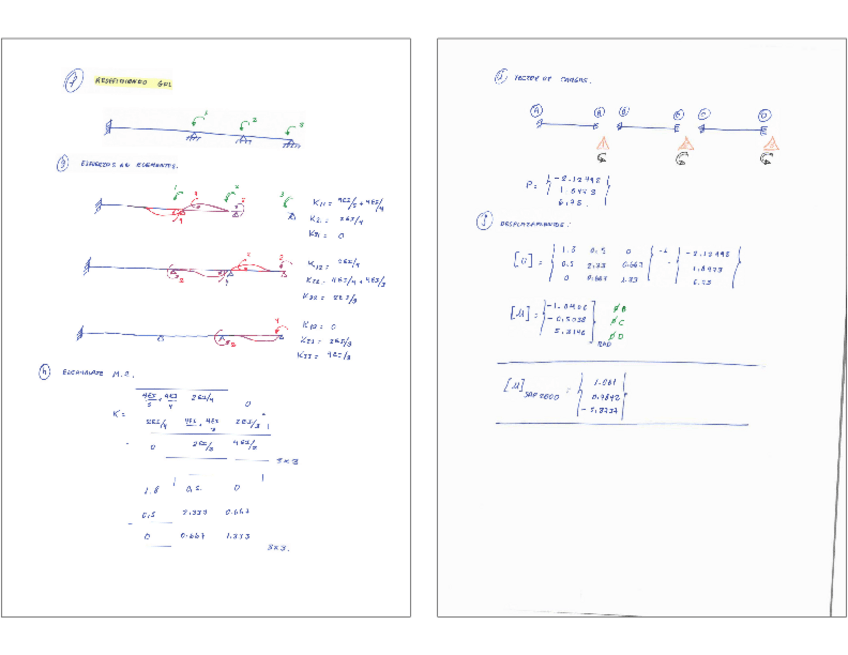 2 REDEFINIENDO GDL
1 2 3
3 ESFUERZOS EN ELEMENTOS.
K11 = 4EI/5 + 4EI/4
K21 = 2EI/4
K31 = 0
K12 = 2EI/4
K22 = 4EI/4 + 4EI/3
K32 = 2EI/3
K13 = 0
K23 = 2EI/3
K33 = 4EI/3
4 ENSAMBLAJE M.R.
K =
4EI/5 + 4EI/4 2EI/4 0
2EI/4 4EI/4 + 4EI/3 2EI/3
0 2EI/3 4EI/3
3x3
1.8 0.5 0
0.5 2.333 0.667
0 0.667 1.333
3x3.
5 VECTOR DE CARGAS.
A B B C C D
P =
-2.12498
6.75
DESPLAZAMIENTOS:
[U] =
1.8 0.5 0
0.5 2.33 0.667
0 0.667 1.33
-1
-2.12498
[U] =
θB
θC
θD
RAD
[U] SAP2000 =